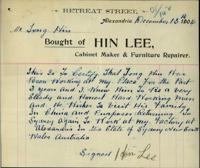 RETREAT STREET,
Alexandria December 13th 190
Mr Tong Hin
Bought of HIN LEE,
Cabinet Maker & Furniture Repairer.
This Is To Certify That Tong Hin Has
Been Working At My Place For The Past
3 years and I Know Him To Be a very
Steady and Honest Hard Working Man
and He Wishes To Visit His Family
In China and Purposes Returning To
Sydney again To Work At My Factory
Alexandria In the State of Sydney New South
Wales Australia
Signed Hin Lee